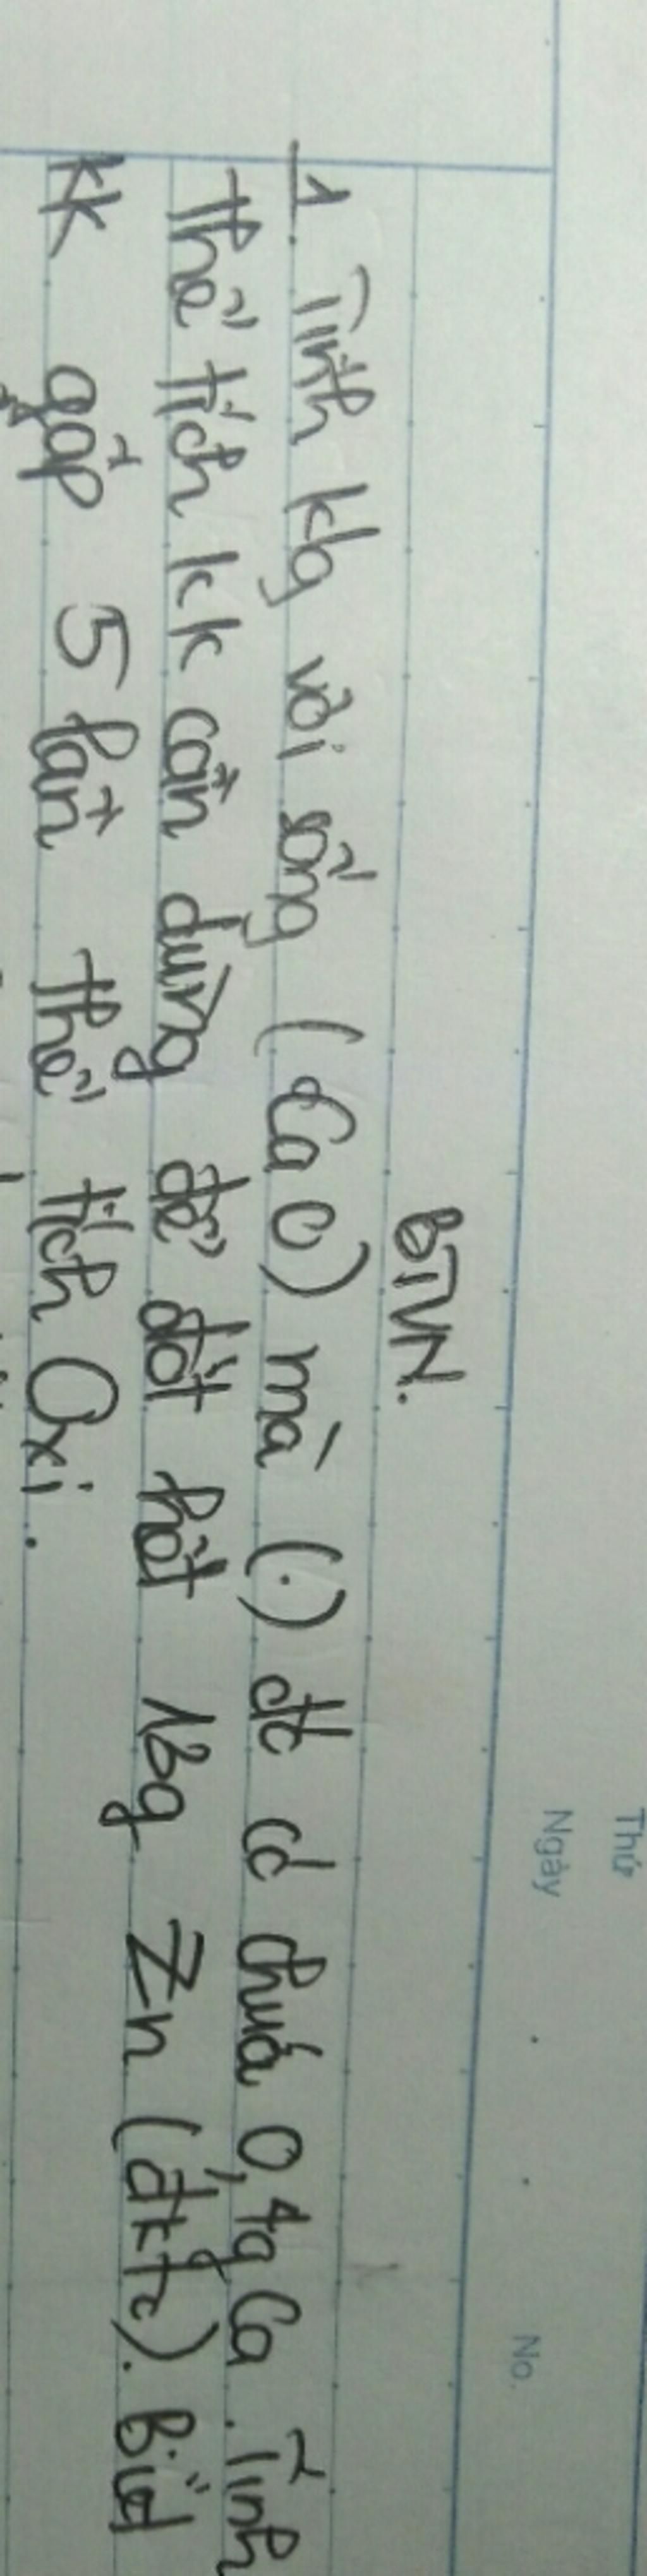 Thứ
Ngày
No.
BTVN.
1. Tính klg vôi sống (CaO) mà (.) đó có chứa 0,4g Ca. Tính
thể tích kk cần dùng để đốt hết 13g Zn (đktc). Biết
kk gấp 5 lần thể tích Oxi.